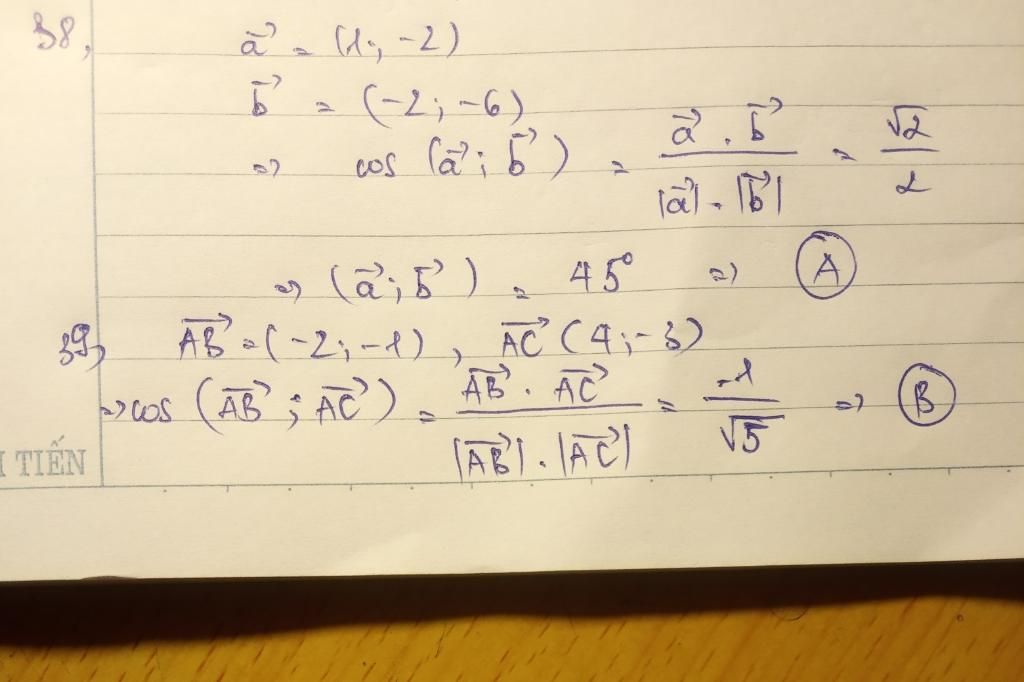 38, a⃗ = (1; -2)
b⃗ = (-2; -6)
=> cos (a⃗; b⃗) = a⃗ . b⃗ / |a⃗| . |b⃗| = √2 / 2
=> (a⃗; b⃗) = 45° => A
39, AB⃗ = (-2; -1), AC⃗ (4; -3)
=> cos (AB⃗; AC⃗) = AB⃗ . AC⃗ / |AB⃗| . |AC⃗| = -1 / √5 => B
TIẾN